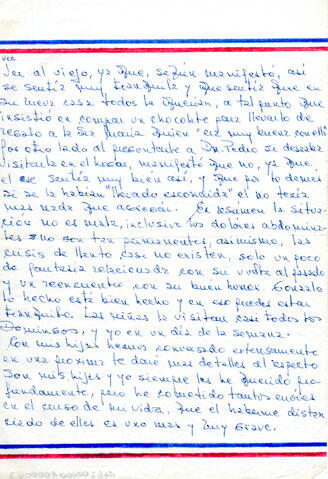 ver
al viejo, ya que, según manifestó, así
se sentía muy tranquila y que sentía que en
su nueva casa todos la querían, a tal punto que
insistió en comprar un chocolate para llevarlo de
regalo a la Sra María quien "era muy buena con ella"
por otro lado al preguntarle a Dn. Pedro se deseaba
visitarla en el hogar, manifestó que no, ya que
el se sentía muy bien así, y que por lo demás
si se la habían "llevado escondida" el no tenía
mas nada que agregar. En resumen la situa-
ción no es mala, inclusive los dolores abdomina-
les no son tan permanentes, asimismo, las
crisis de llanto casi no existen, solo un poco
de fantasía relacionada con su vuelta al pasado
y un reencuentro con su buen humor. Gonzalo
lo hecho está bien hecho y en eso puedes estar
tranquilo. Las niñas la visitan casi todos los
Domingos, y yo en un día de la semana.
Con mis hijas hemos conversado extensamente
en una próxima te daré mas detalles al respecto
Son mis hijas y yo siempre las he querido pro-
fundamente, pero he cometido tantos errores
en el curso de mi vida, que el haberme distan-
ciado de ellas es uno mas y muy grave.